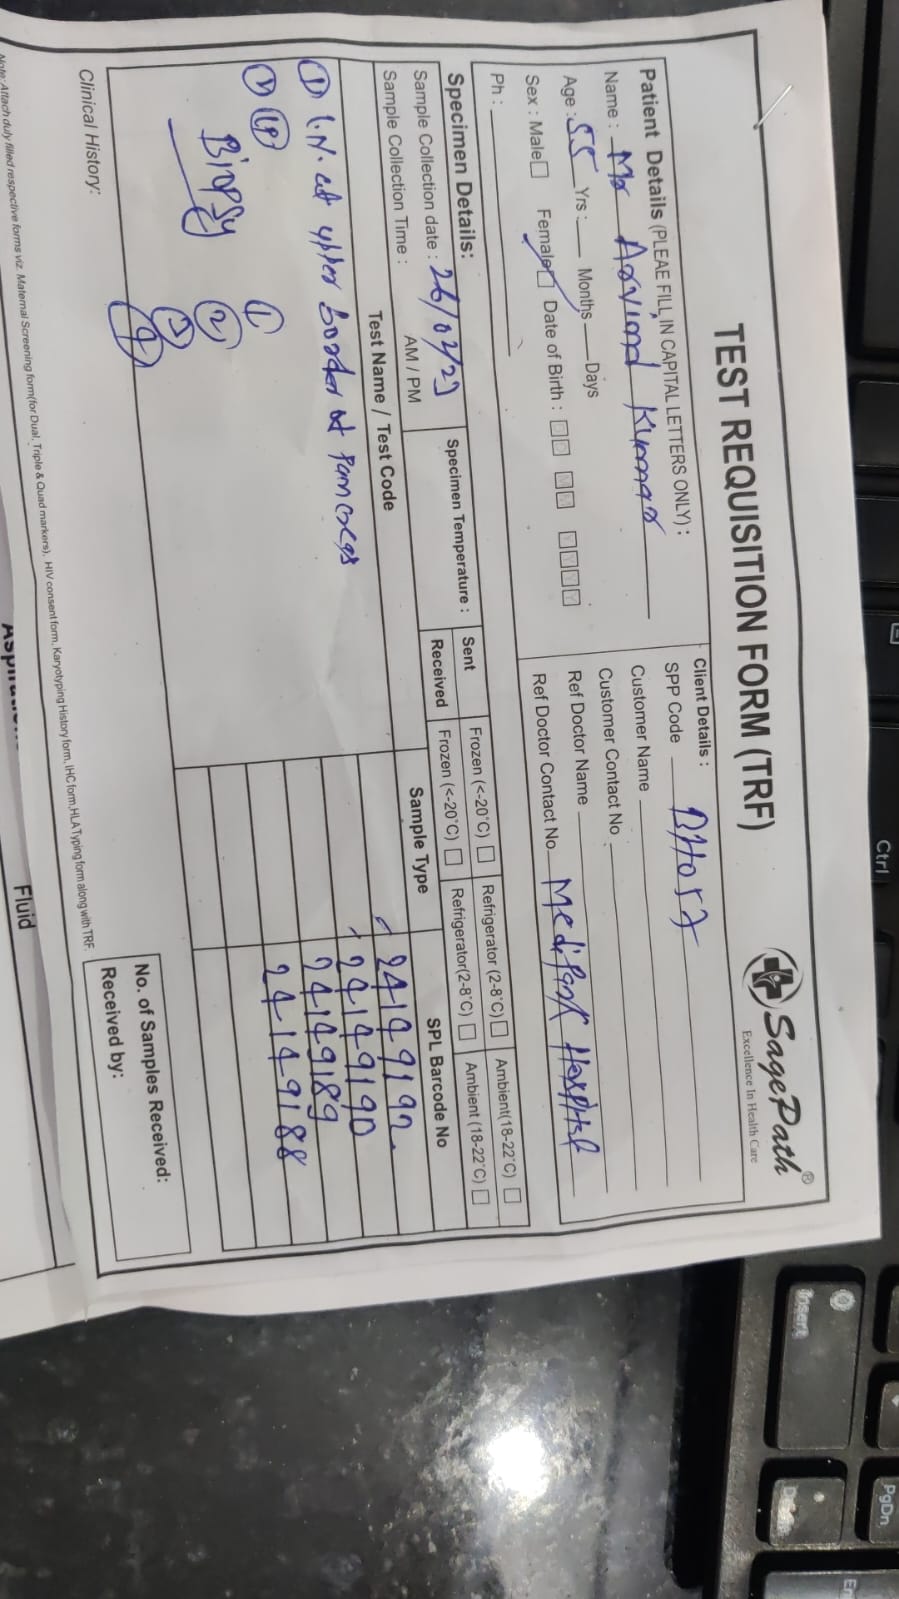 TEST REQUISITION FORM (TRF)
SagePath®
Excellence In Health Care
Patient Details (PLEAE FILL IN CAPITAL LETTERS ONLY) :
Name : Mr Arvind Kumar
Age : 55 Yrs : Months Days
Sex : Male Female Date of Birth : D D M M Y Y Y Y
Ph :
Client Details :
SPP Code
Customer Name
Customer Contact No
Ref Doctor Name
Ref Doctor Contact No. Medipark Hospital
Specimen Details:
Sample Collection date : 26/02/23
Sample Collection Time : AM / PM
Specimen Temperature :
Sent Frozen (<-20°C) Refrigerator (2-8°C) Ambient(18-22°C)
Received Frozen (<-20°C) Refrigerator(2-8°C) Ambient (18-22°C)
Test Name / Test Code Sample Type SPL Barcode No
① L.N. at upper border of pancreas
Biopsy
24149192
24149190
24149189
24149188
①
②
③
④
Clinical History:
No. of Samples Received:
Received by:
Note: Attach duly filled respective forms viz. Maternal Screening form(for Dual, Triple & Quad markers), HIV consent form, Karyotyping History form, IHC form,HLA Typing form along with TRF.
Fluid
Ctrl
Insert
PgDn